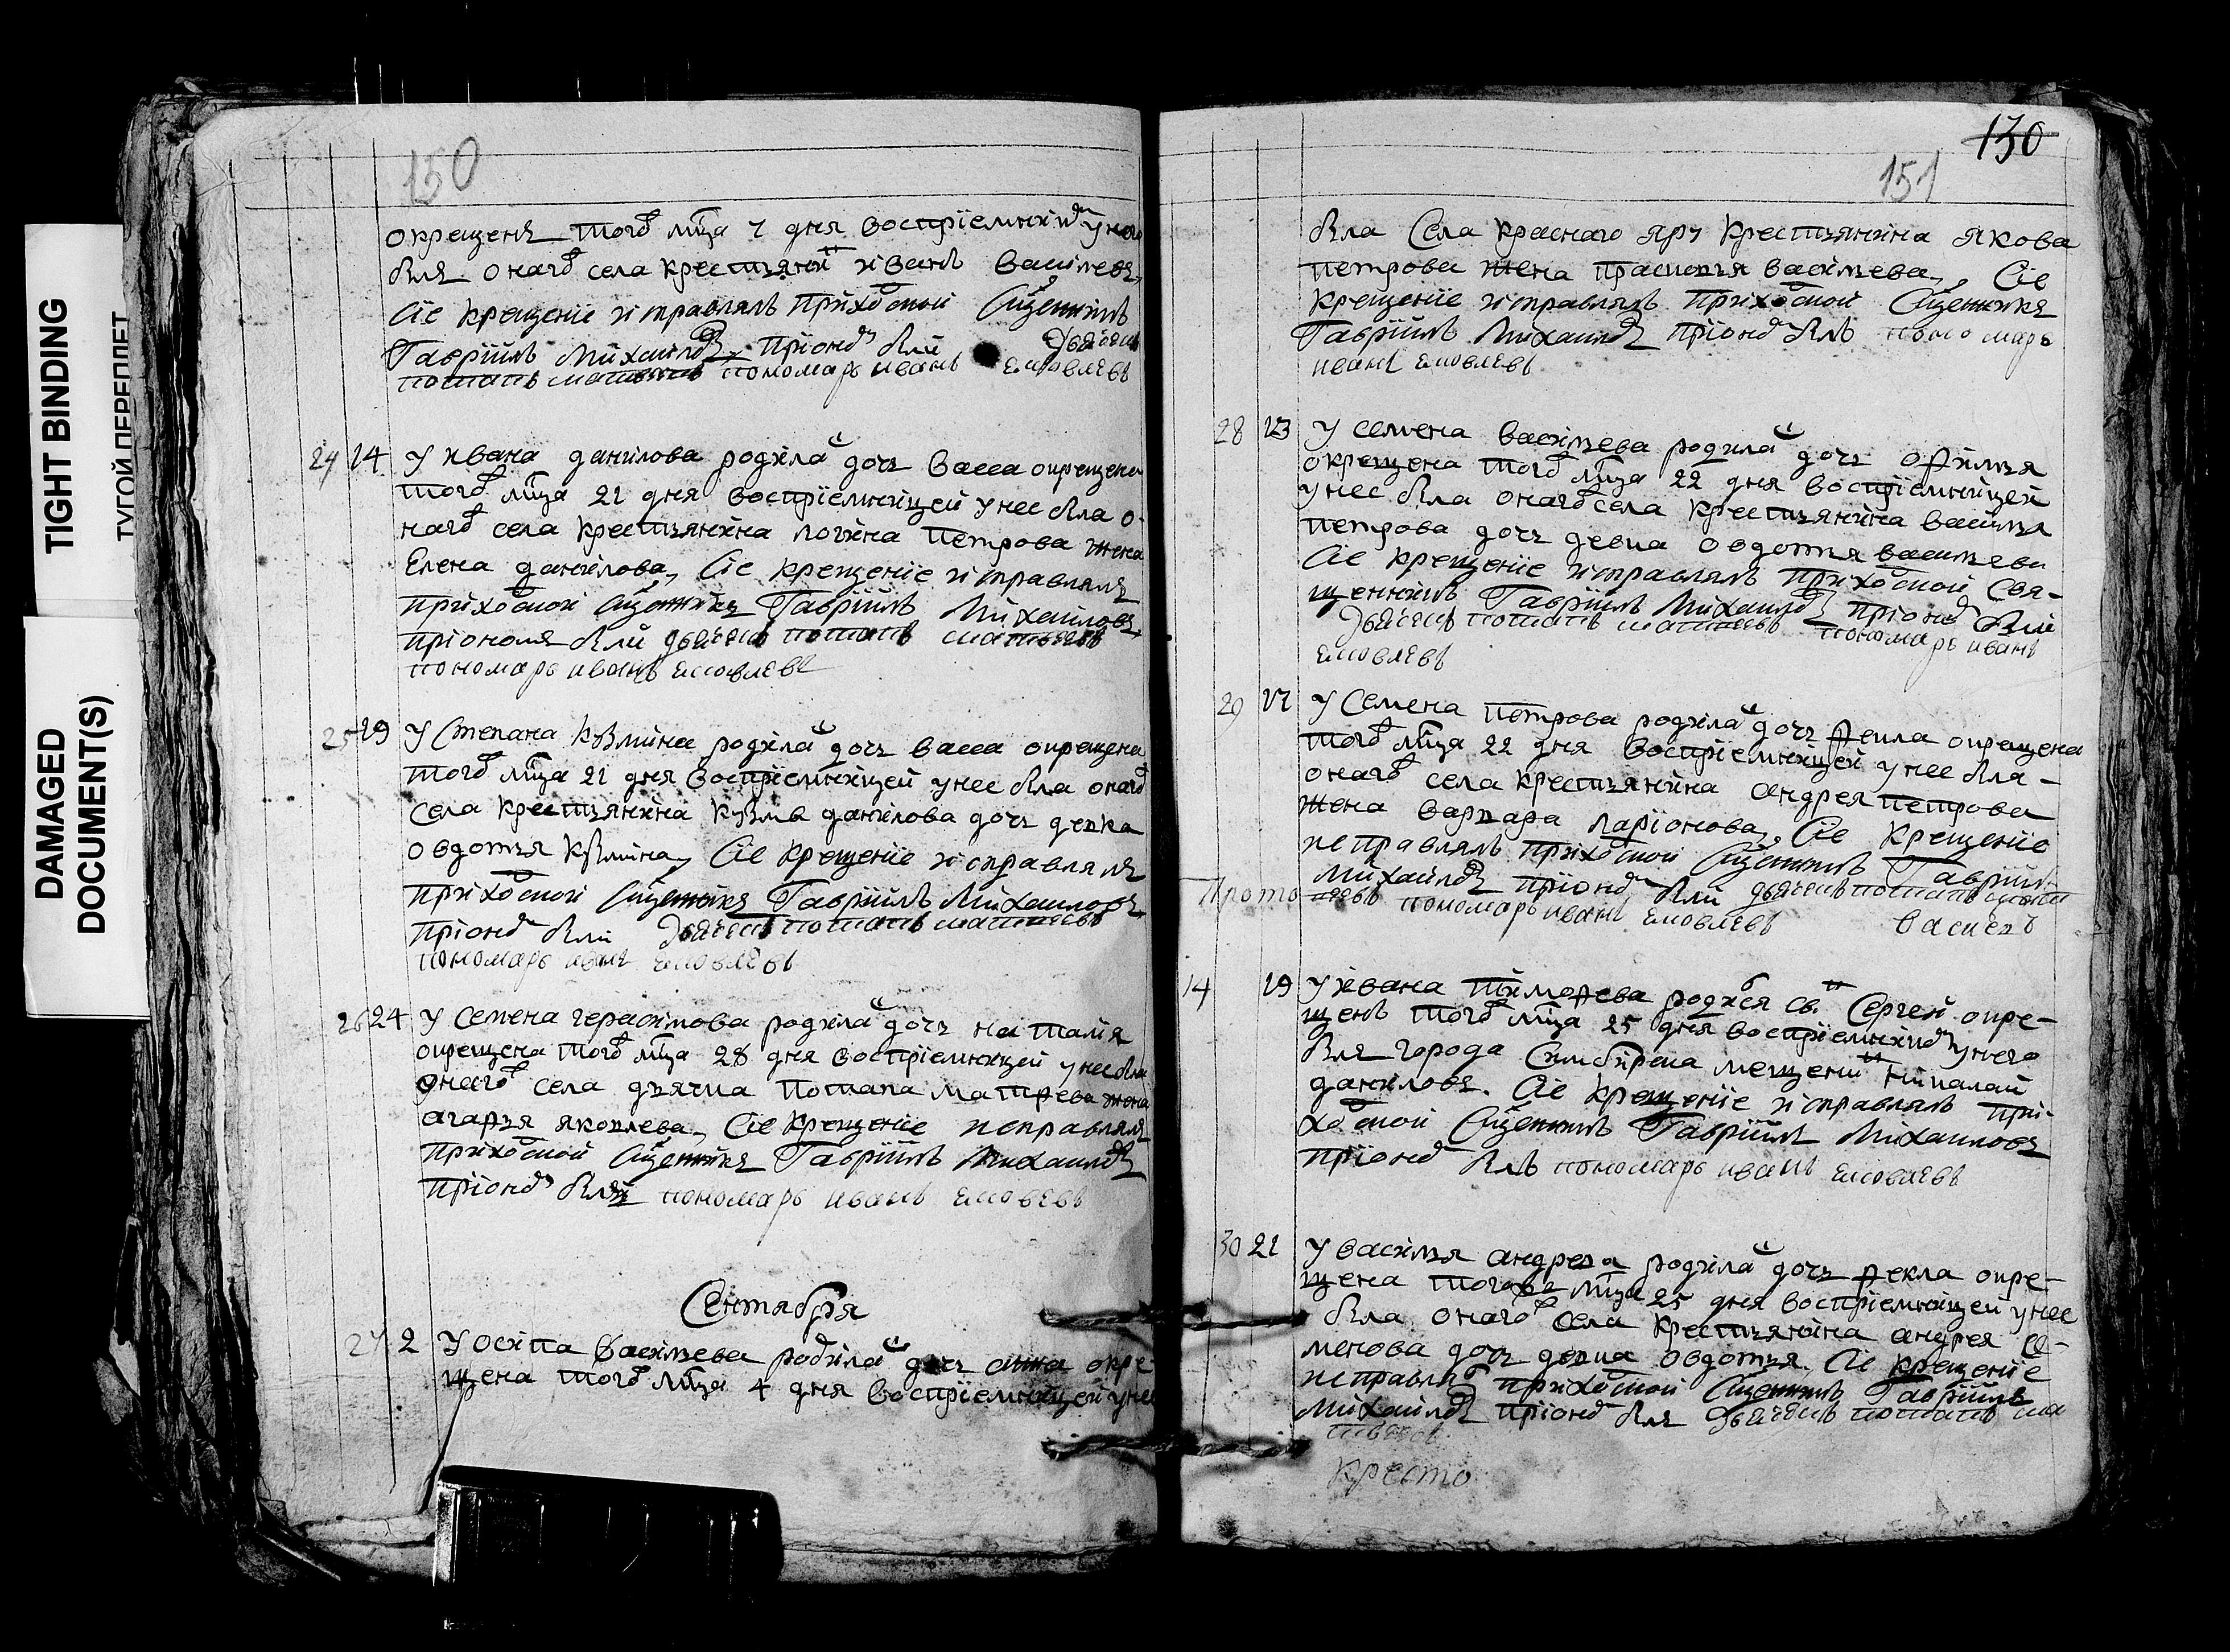 TIGHT BINDING
ТУГОЙ ПЕРЕПЛЕТ
DAMAGED
DOCUMENT(S)
150
окрещенъ того мца 7 дня восприемникомъ у него
былъ онаго села крестьянинъ иванъ васильевъ,
Сiе крещенiе исправлялъ приходской Сщенникъ
Гаврiилъ Михаиловъ, при ономъ были Дьячекъ
потапъ матвеевъ пономарь иванъ
24 14 У ивана данилова родилась дочь васса окрещена
того мца 21 дня восприемницей у нее была о-
наго села крестьянина логина петрова жена
Елена данилова, Сiе крещенiе исправлялъ
приходской Сщенникъ Гаврiилъ Михаиловъ,
при ономъ были дьячекъ потапъ матвеевъ
пономарь иванъ
25 19 У Степана кузмина родилась дочь васса окрещена
того мца 21 дня восприемницей у нее была онаго
села крестьянина кузмы данилова дочь девка
овдотья кузмина, Сiе крещенiе исправлялъ
приходской Сщенникъ Гаврiилъ Михаиловъ,
при ономъ были Дьячекъ потапъ матвеевъ
пономарь иванъ
26 24 У Семена герасимова родилась дочь наталя
окрещена того мца 28 дня восприемницей у нее была
онаго села дьячка потапа матфева жена
агафья яковлева, Сiе крещенiе исправлялъ
приходской Сщенникъ Гаврiилъ Михаиловъ
при ономъ былъ пономарь иванъ
Сентября
27 2 У осипа васильева родилась дочь анна окре-
щена того мца 4 дня восприемницей у нее
130
151
была Села краснаго яру крестьянина якова
петрова жена прасковья васильева, Сiе
крещенiе исправлялъ приходской Сщенникъ
Гаврiилъ Михаиловъ при ономъ былъ пономарь
иванъ
28 13 У семена васильева родилась дочь офимья
окрещена того мца 22 дня восприемницей
у нее была онаго села крестьянина василья
петрова дочь девка овдотья васильева
Сiе крещенiе исправлялъ приходской Свя-
щенникъ Гаврiилъ Михаиловъ при ономъ были
Дьячекъ потапъ матвеевъ пономарь иванъ
29 17 У Семена петрова родилась дочь фекла окрещена
того мца 22 дня восприемницей у нее была
онаго села крестьянина андрея петрова
жена варвара ларiонова, Сiе крещенiе
исправлялъ приходской Сщенникъ Гаврiилъ
Михаиловъ при ономъ были дьячекъ потапъ
Прото пономарь иванъ
14 19 У ивана тимофева родился снъ Сергей окре-
щенъ того мца 25 дня восприемникомъ у него
былъ города Симбирска мещенинъ николай
даниловъ. Сiе крещенiе исправлялъ при-
ходской Сщенникъ Гаврiилъ Михаиловъ
при ономъ былъ пономарь иванъ
30 21 У василья андрева родилась дочь фекла окре-
щена тогожъ мца 25 дня восприемницей у нее
была онаго села крестьянина андрея се-
менова дочь девка овдотья. Сiе крещенiе
исправлялъ приходской Сщенникъ Гаврiилъ
Михаиловъ при ономъ былъ Дьячекъ потапъ ма
твеевъ
кресто